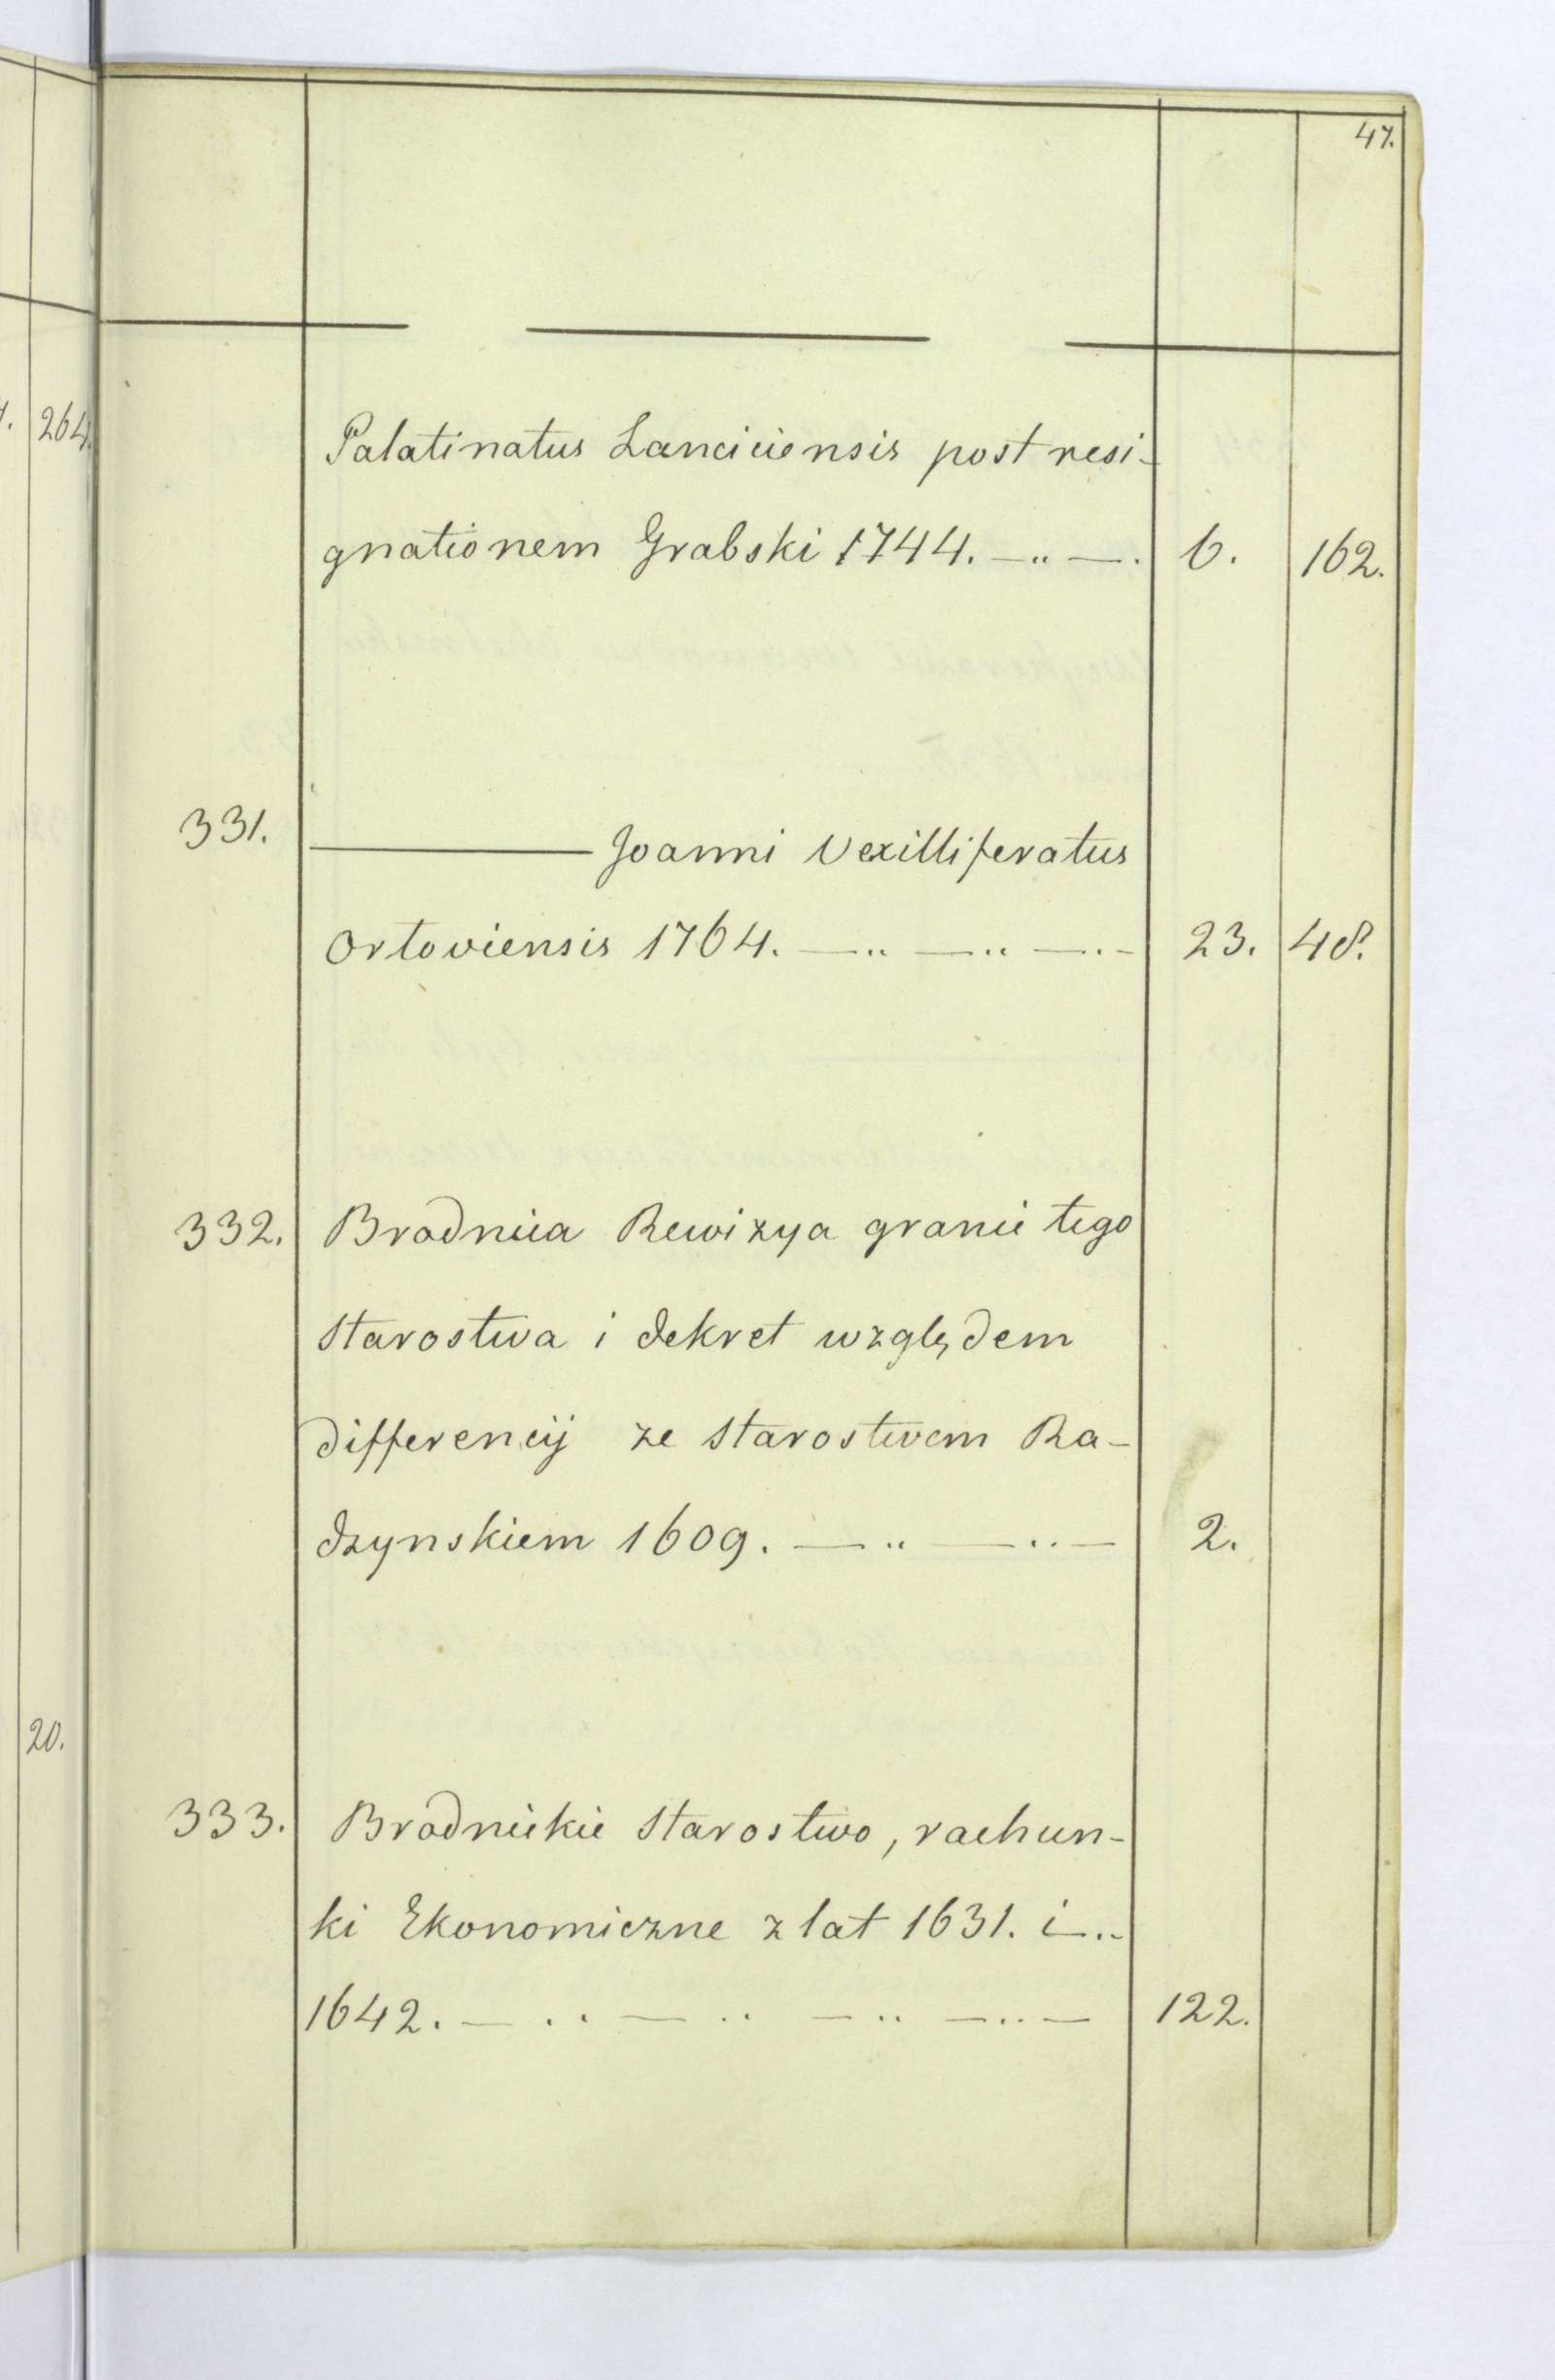 47.
264.
Palatinatus Lanciciensis post resi-
gnationem Grabski 1744. —„—. 6. 162.
331. ——— Joanni Vexilliferatus
Ortoviensis 1764. —„—„—„— 23. 48.
332. Brodnica Rewizya granic tego
Starostwa i dekret względem
differencij ze Starostwem Ra-
dzynskiem 1609. —„—„— 2.
20.
333. Brodnickie Starostwo, rachun-
ki Ekonomiczne z lat 1631. i —„
1642. —„—„—„—„— 122.